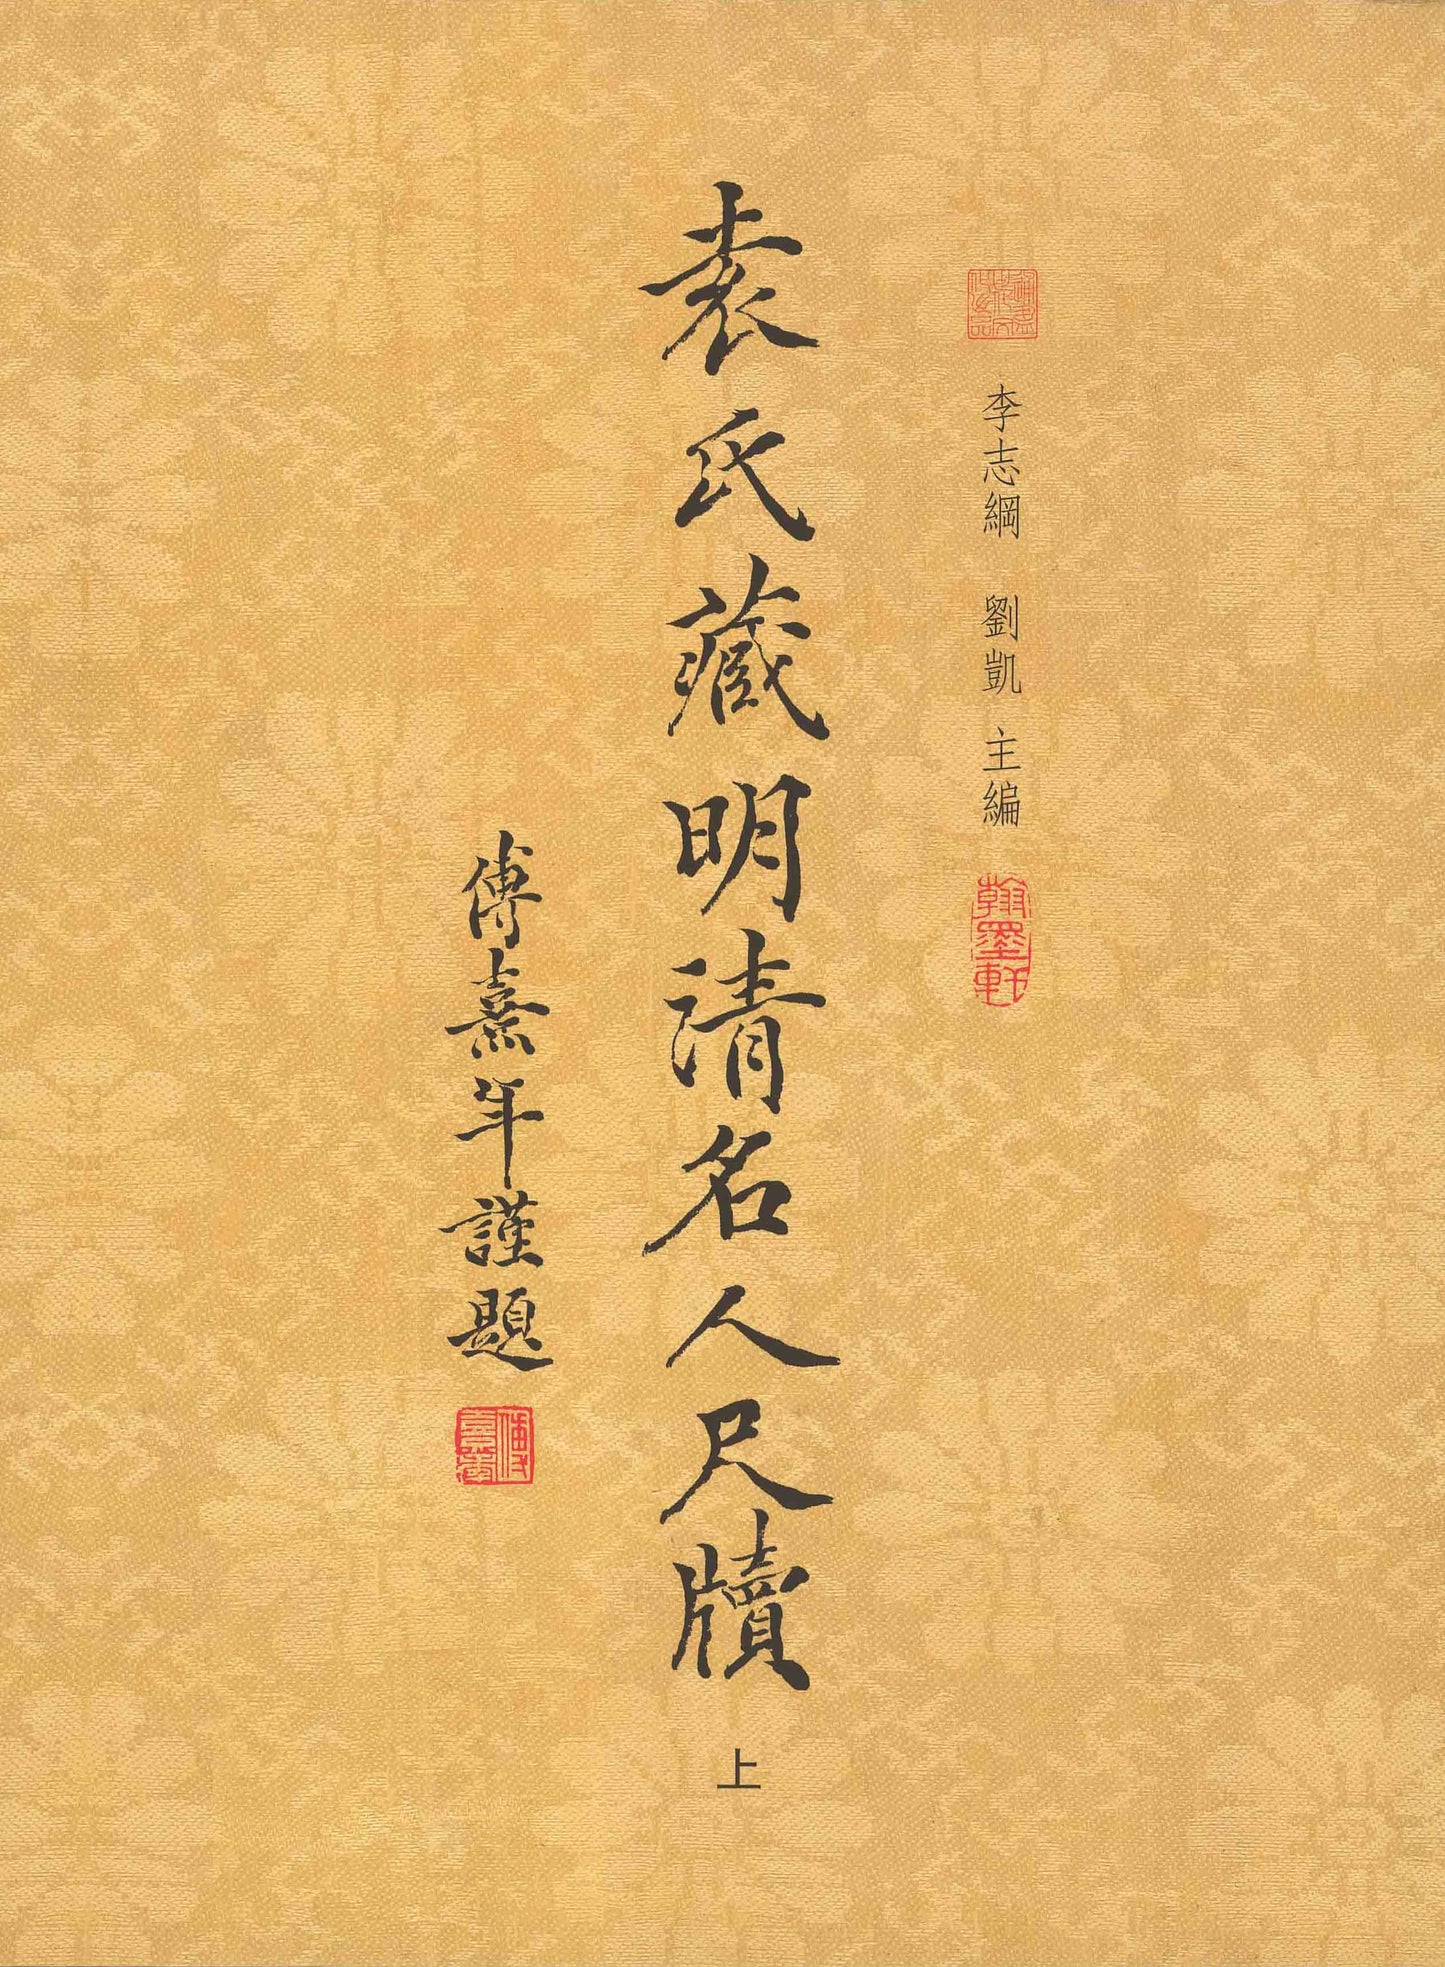 李志綱 劉凱 主編
翰墨軒
袁氏藏明清名人尺牘
上
傅熹年謹題
傅熹年